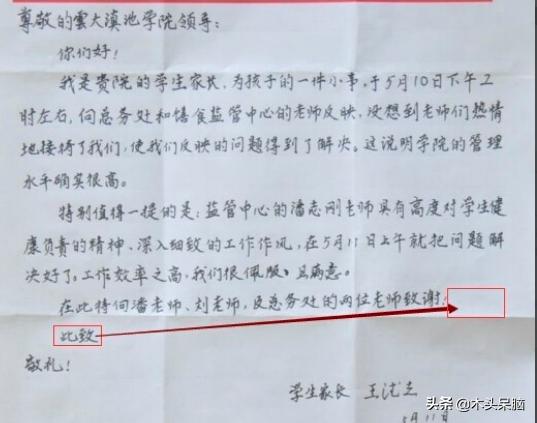 尊敬的雲大滇池学院领导：
你们好！
我是贵院的学生家长，为孩子的一件小事，于5月10日下午2
时左右，向总务处和膳食监管中心的老师反映，没想到老师们热情
地接待了我们，使我们反映的问题得到了解决。这说明学院的管理
水平确实很高。
特别值得一提的是：监管中心的潘志刚老师具有高度对学生健
康负责的精神、深入细致的工作作风，在5月11日上午就把问题解
决好了。工作效率之高，我们很佩服！且满意。
在此特向潘老师、刘老师，及总务处的两位老师致谢！
此致
敬礼！
学生家长 王
5月11日
头条 @木头呆脑